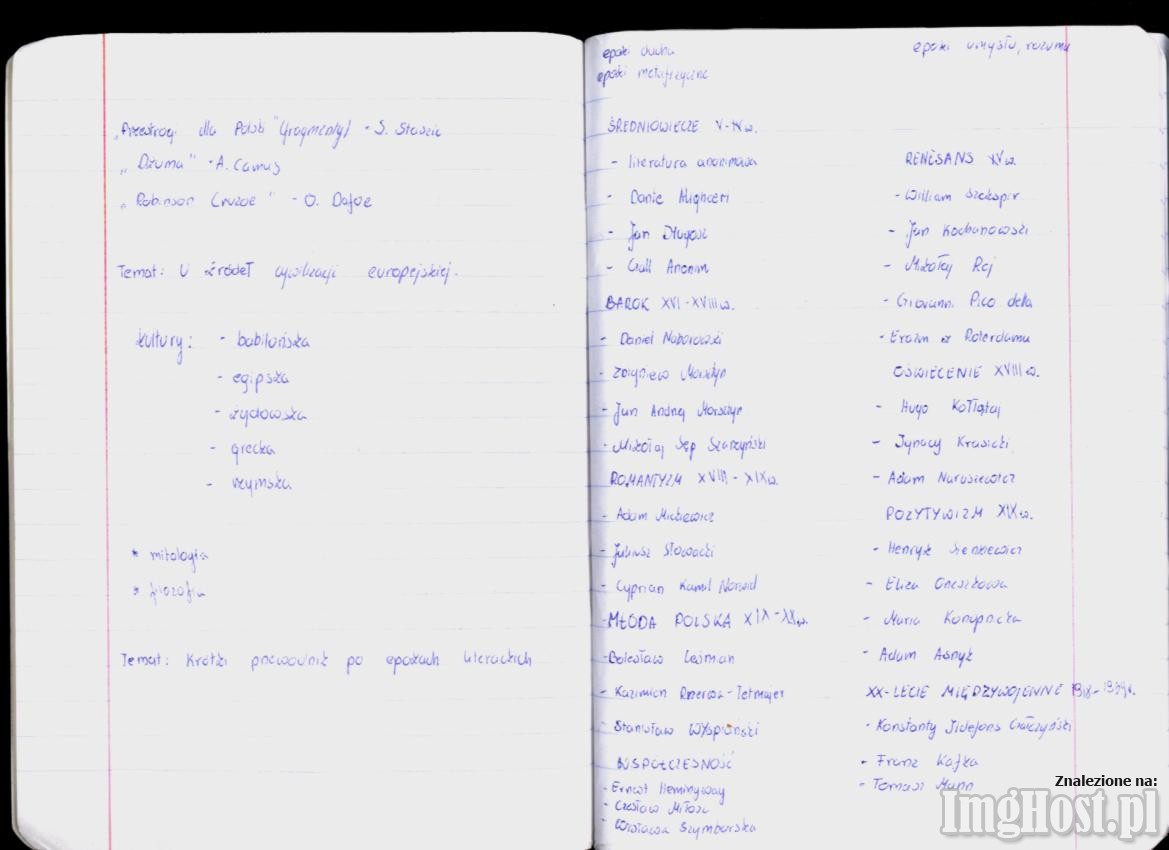 „Przestrogi dla Polski" (fragmenty) - S. Staszic
„Dżuma" - A. Camus
„Robinson Cruzoe" - D. Dafoe
Temat: U źródeł cywilizacji europejskiej.
kultury: - babilońska
- egipska
- żydowska
- grecka
- rzymska
* mitologia
* filozofia
Temat: Krótki przewodnik po epokach literackich
epoki ducha
epoki metafizyczne
ŚREDNIOWIECZE V-XV w.
- literatura anonimowa
- Dante Alighieri
- Jan Długosz
- Gall Anonim
BAROK XVI-XVIII w.
- Daniel Naborowski
- Zbigniew Morsztyn
- Jan Andrzej Morsztyn
- Mikołaj Sęp Szarzyński
ROMANTYZM XVIII - XIX w.
- Adam Mickiewicz
- Juliusz Słowacki
- Cyprian Kamil Norwid
MŁODA POLSKA XIX-XX w.
- Bolesław Leśmian
- Kazimierz Przerwa-Tetmajer
Stanisław Wyspiański
WSPÓŁCZESNOŚĆ
- Ernest Hemingway
- Czesław Miłosz
- Wisława Szymborska
epoki umysłu, rozumu
RENESANS XV w.
- William Szekspir
- Jan Kochanowski
- Mikołaj Rej
- Giovanni Pico della
- Erazm z Roterdamu
OŚWIECENIE XVIII w.
- Hugo Kołłątaj
- Ignacy Krasicki
- Adam Naruszewicz
POZYTYWIZM XIX w.
- Henryk Sienkiewicz
- Eliza Orzeszkowa
- Maria Konopnicka
- Adam Asnyk
XX-LECIE MIĘDZYWOJENNE 1918-1939 r.
- Konstanty Ildefons Gałczyński
- Franz Kafka
- Tomasz Mann
Znalezione na:
ImgHost.pl